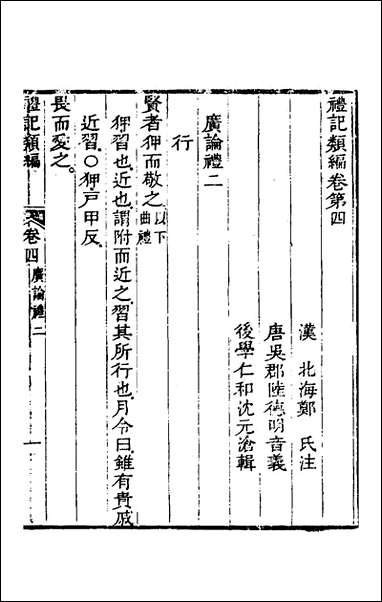 禮記類編卷第四
漢北海鄭氏注
唐吳郡陸德明音義
後學仁和沈元滄輯
廣論禮二
行
賢者狎而敬之以下曲禮
狎習也近也謂附而近之習其所行也月令曰雖有貴戚
近習〇狎戶甲反
畏而愛之
禮記類編 卷四 廣論禮二 一